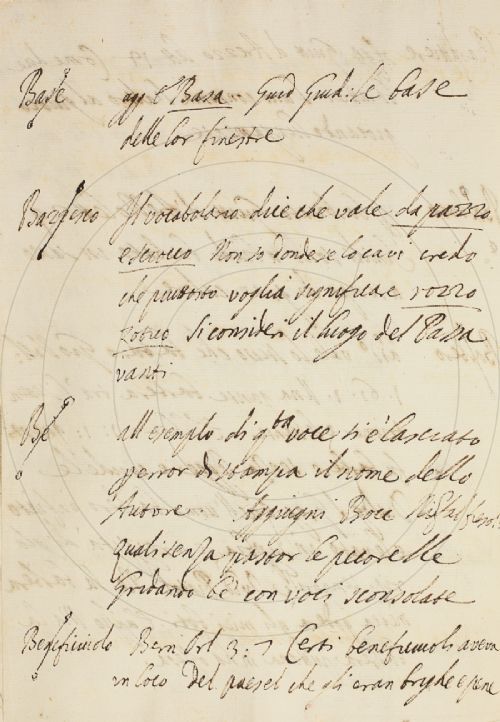 Base agg e Basa Guid Giud: le base
delle lor finestre
Bazzesco Il vocabolario dice che vale da pazzo,
e sciocco Non so donde se lo cavi credo
che piuttosto voglia significar rozzo
zotico Si consideri il luogo del Passa
vanti
Be all'esempio di qta voce si è lasciato
per error di stampa il nome dello
Autore Aggiugni Bocc
quali senza pastor le pecorelle
Gridando bè con voci sconsolate
Beneficiuolo Bern Orl 3: 7 Certi beneficiuoli aveva
in loco del paesel che gli eran brighe e pene